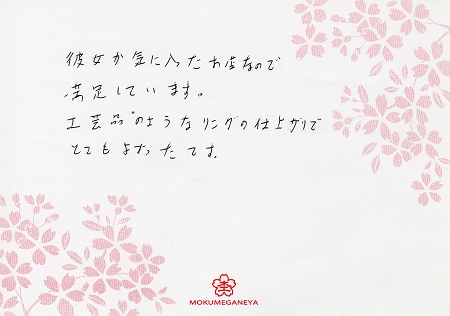 彼女が気に入ったお店なので
満足しています。
工芸品"のようなリングの仕上がりで
とてもよかったです。
MOKUMEGANEYA